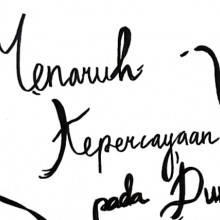 Menaruh
Kepercayaan
pada